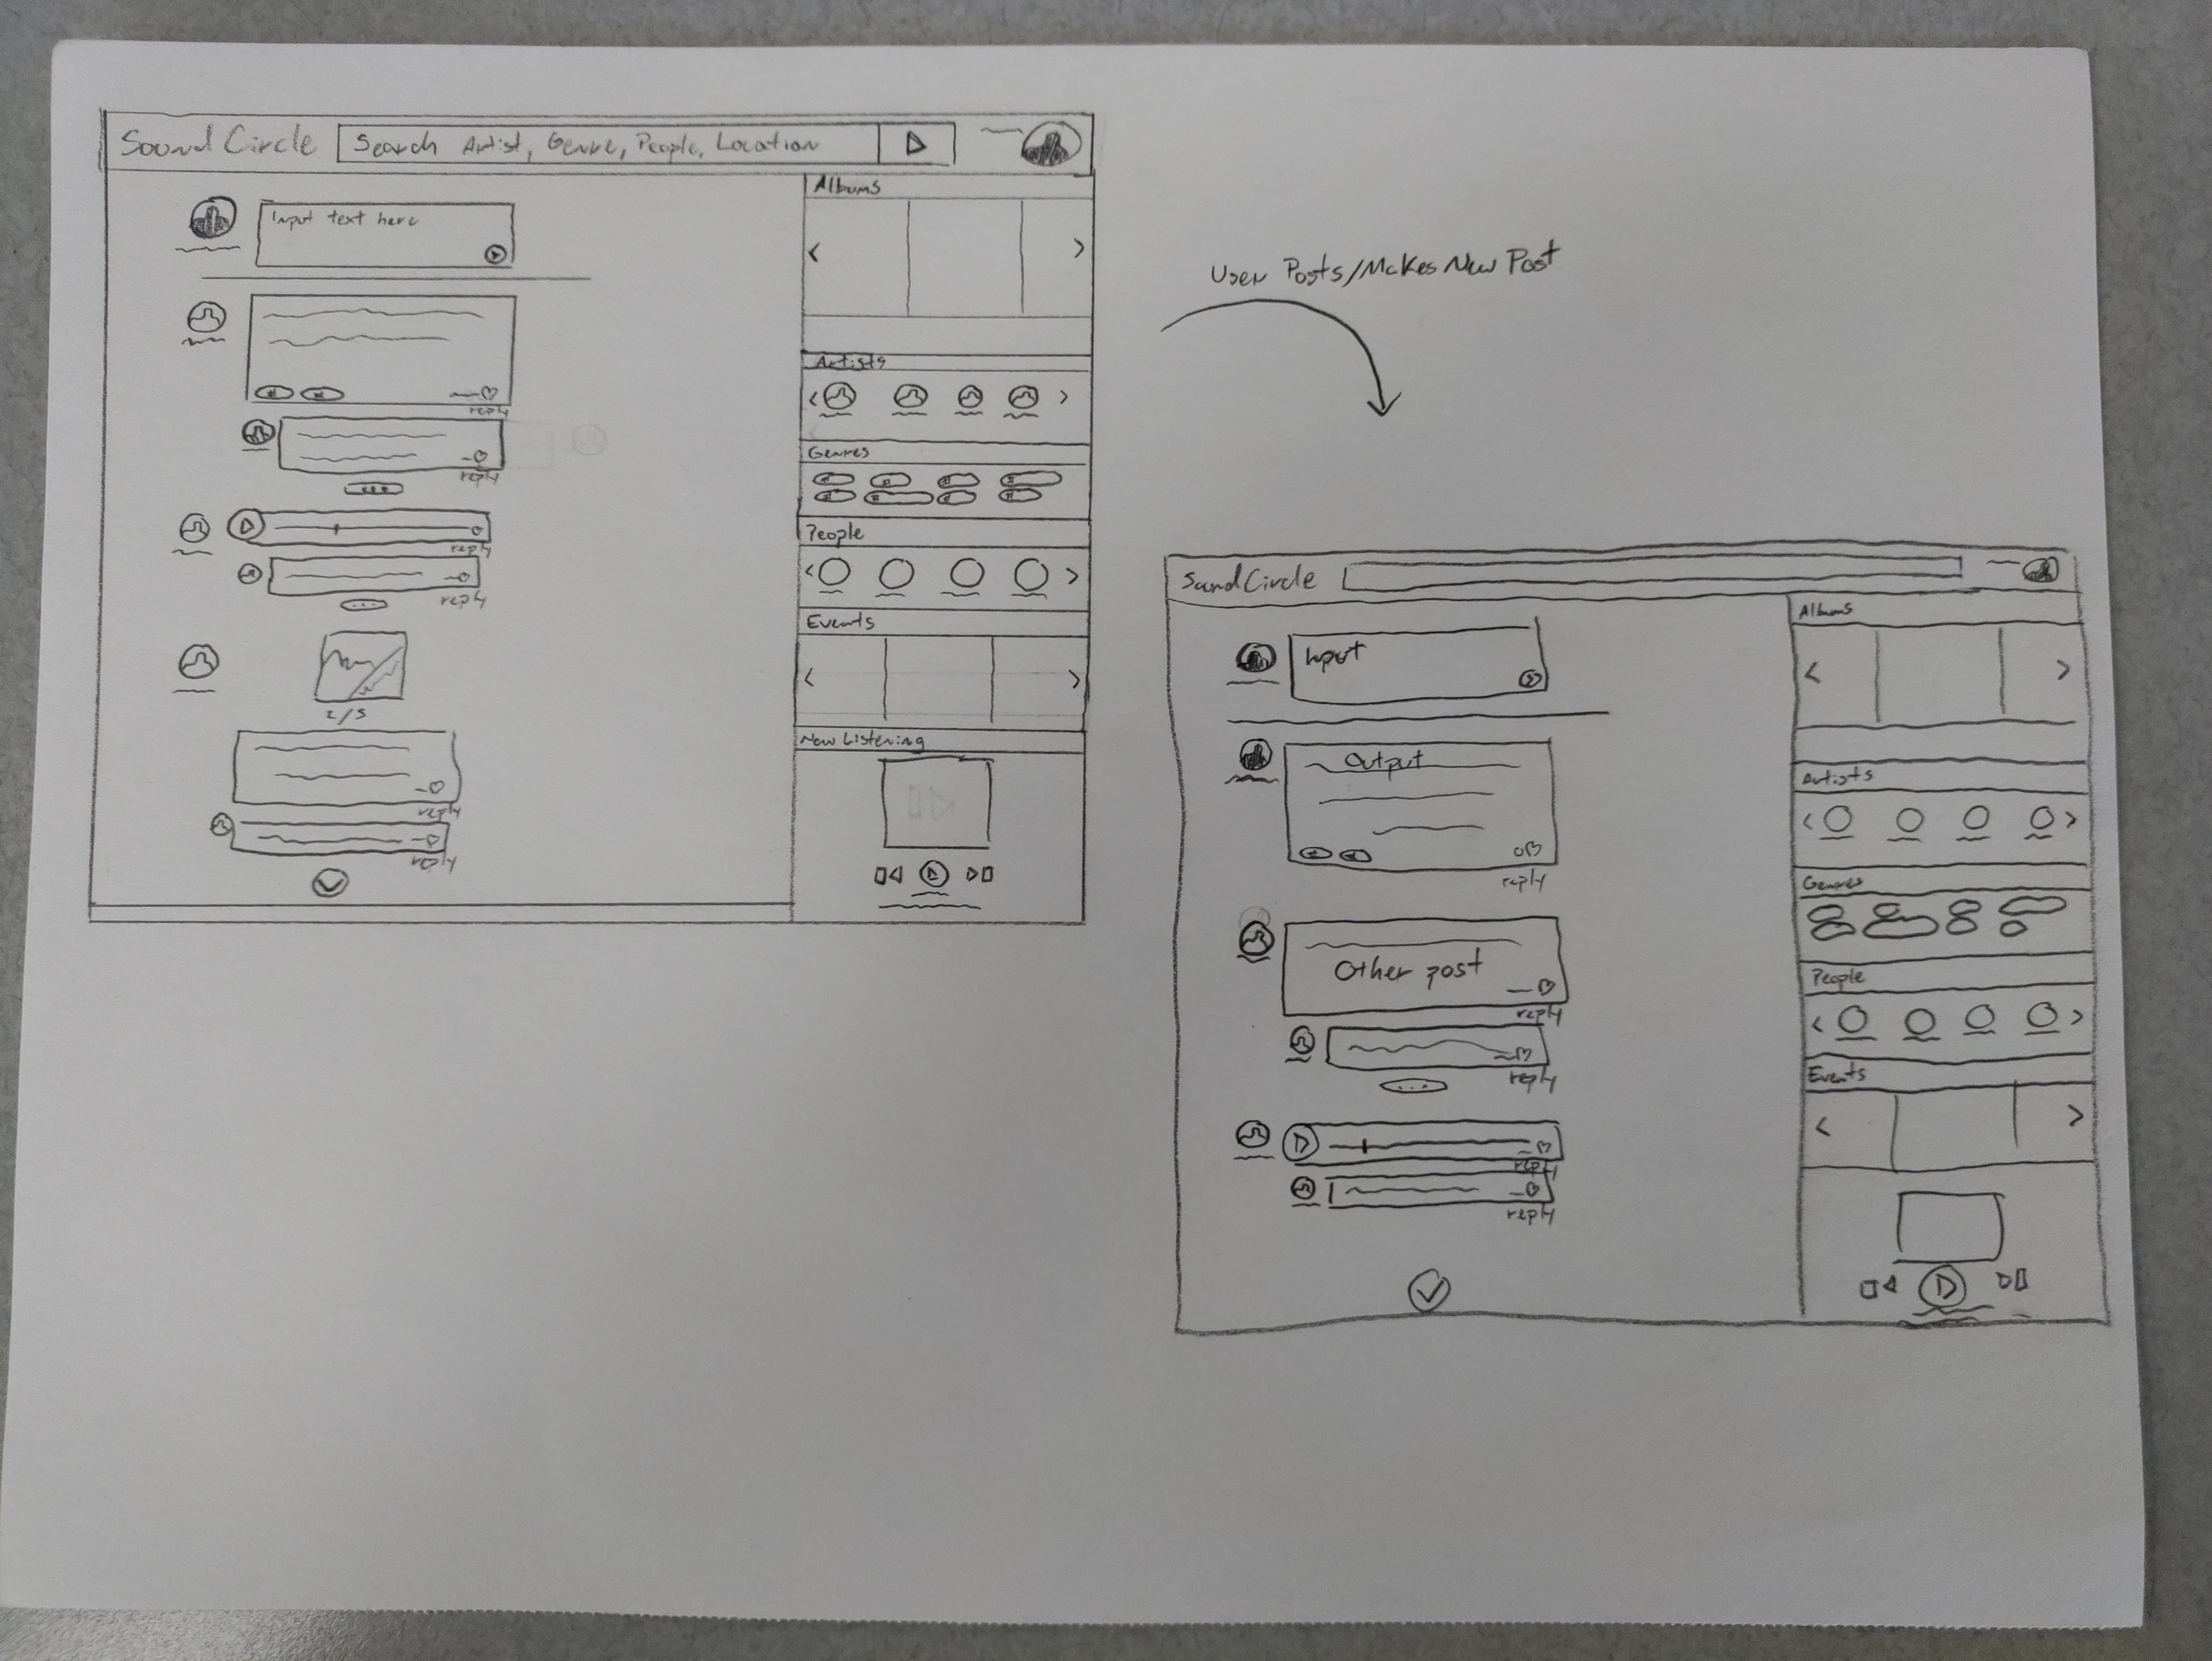 Sound Circle
Search Artist, Genre, People, Location
Input text here
reply
reply
reply
reply
2/5
reply
reply
Albums
Artists
Genres
People
Events
Now Listening
User Posts/Makes New Post
Sound Circle
Input
Output
reply
Other post
reply
reply
reply
reply
Albums
Artists
Genres
People
Events